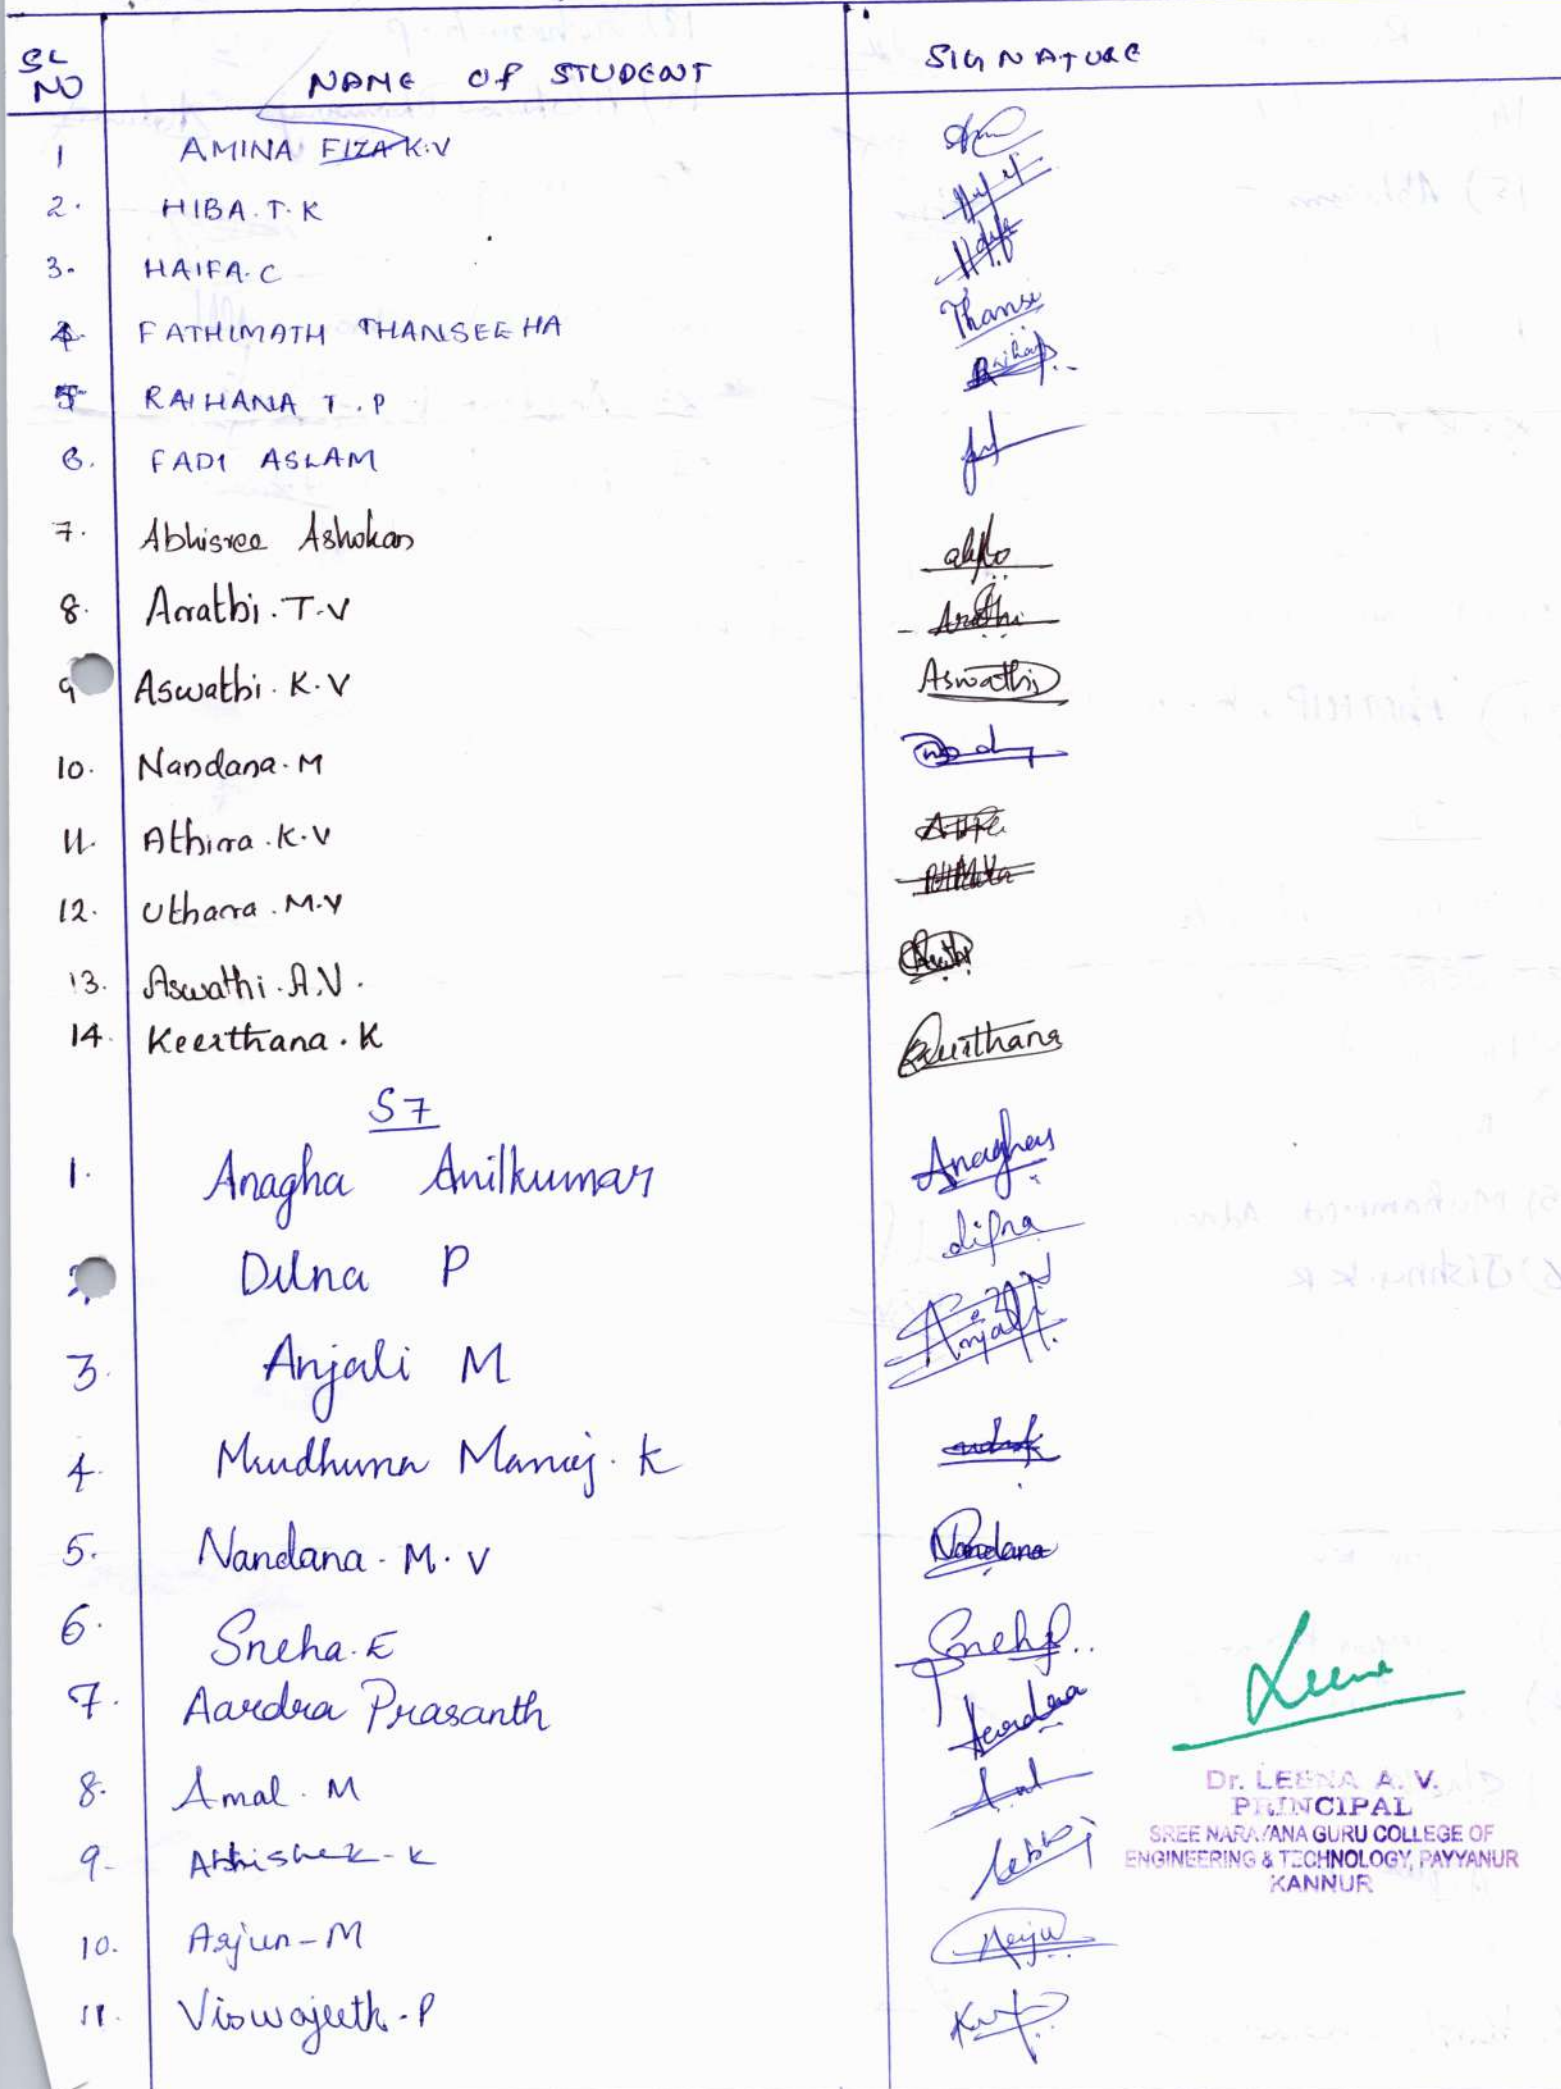 SL NO NAME OF STUDENT SIGNATURE
1 AMINA FIZA K.V
2. HIBA.T.K
3. HAIFA.C
4. FATHIMATH THANSEEHA Thansi
5 RAIHANA T.P
6. FADI ASLAM
7. Abhisree Ashokan
8. Arrathi.T.V
9 Aswathi.K.V Aswathi
10. Nandana.M
11. Athirra.K.V
12. Utharra.M.V
13. Aswathi.A.V.
14. Keerthana.K Keerthana
S7
1. Anagha Anilkumar Anagha
Dilna P dilna
3. Anjali M Anjali
4. Mrudhuna Manoj.K
5. Nandana.M.V Nandana
6. Sneha.E Sneha
7. Aardra Prasanth Aardra
8. Amal.M
9- Abhishek-K
10. Arjun-M
11. Viswajeeth.P
Leena
Dr. LEENA A. V.
PRINCIPAL
SREE NARAYANA GURU COLLEGE OF
ENGINEERING & TECHNOLOGY, PAYYANUR
KANNUR